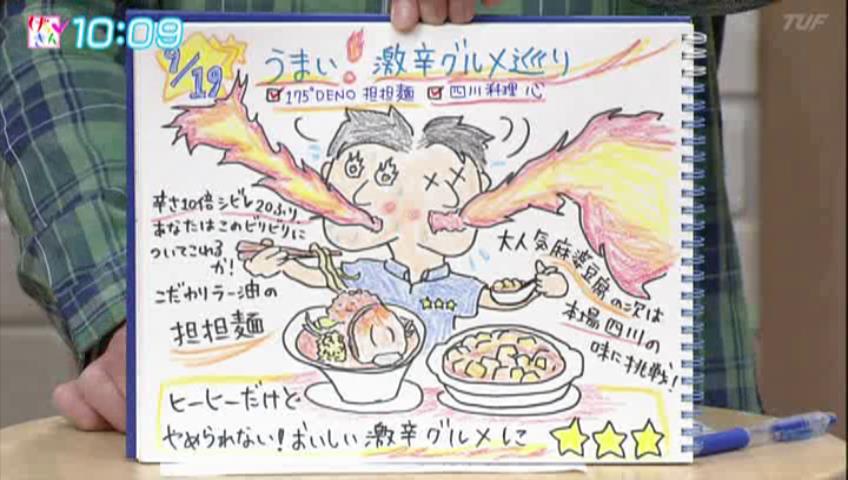 げんきん
10:09
TUF
9/19
うまい!激辛グルメ巡り
175°DENO 担担麺 四川料理 心
辛さ10倍 シビレ20ふり
あなたはこのビリビリに
ついてこれる
か!
こだわりラー油の
担担麺
大人気麻婆豆腐の次は
本場四川の
味に挑戦!
ヒーヒーだけど
やめられない!おいしい激辛グルメに